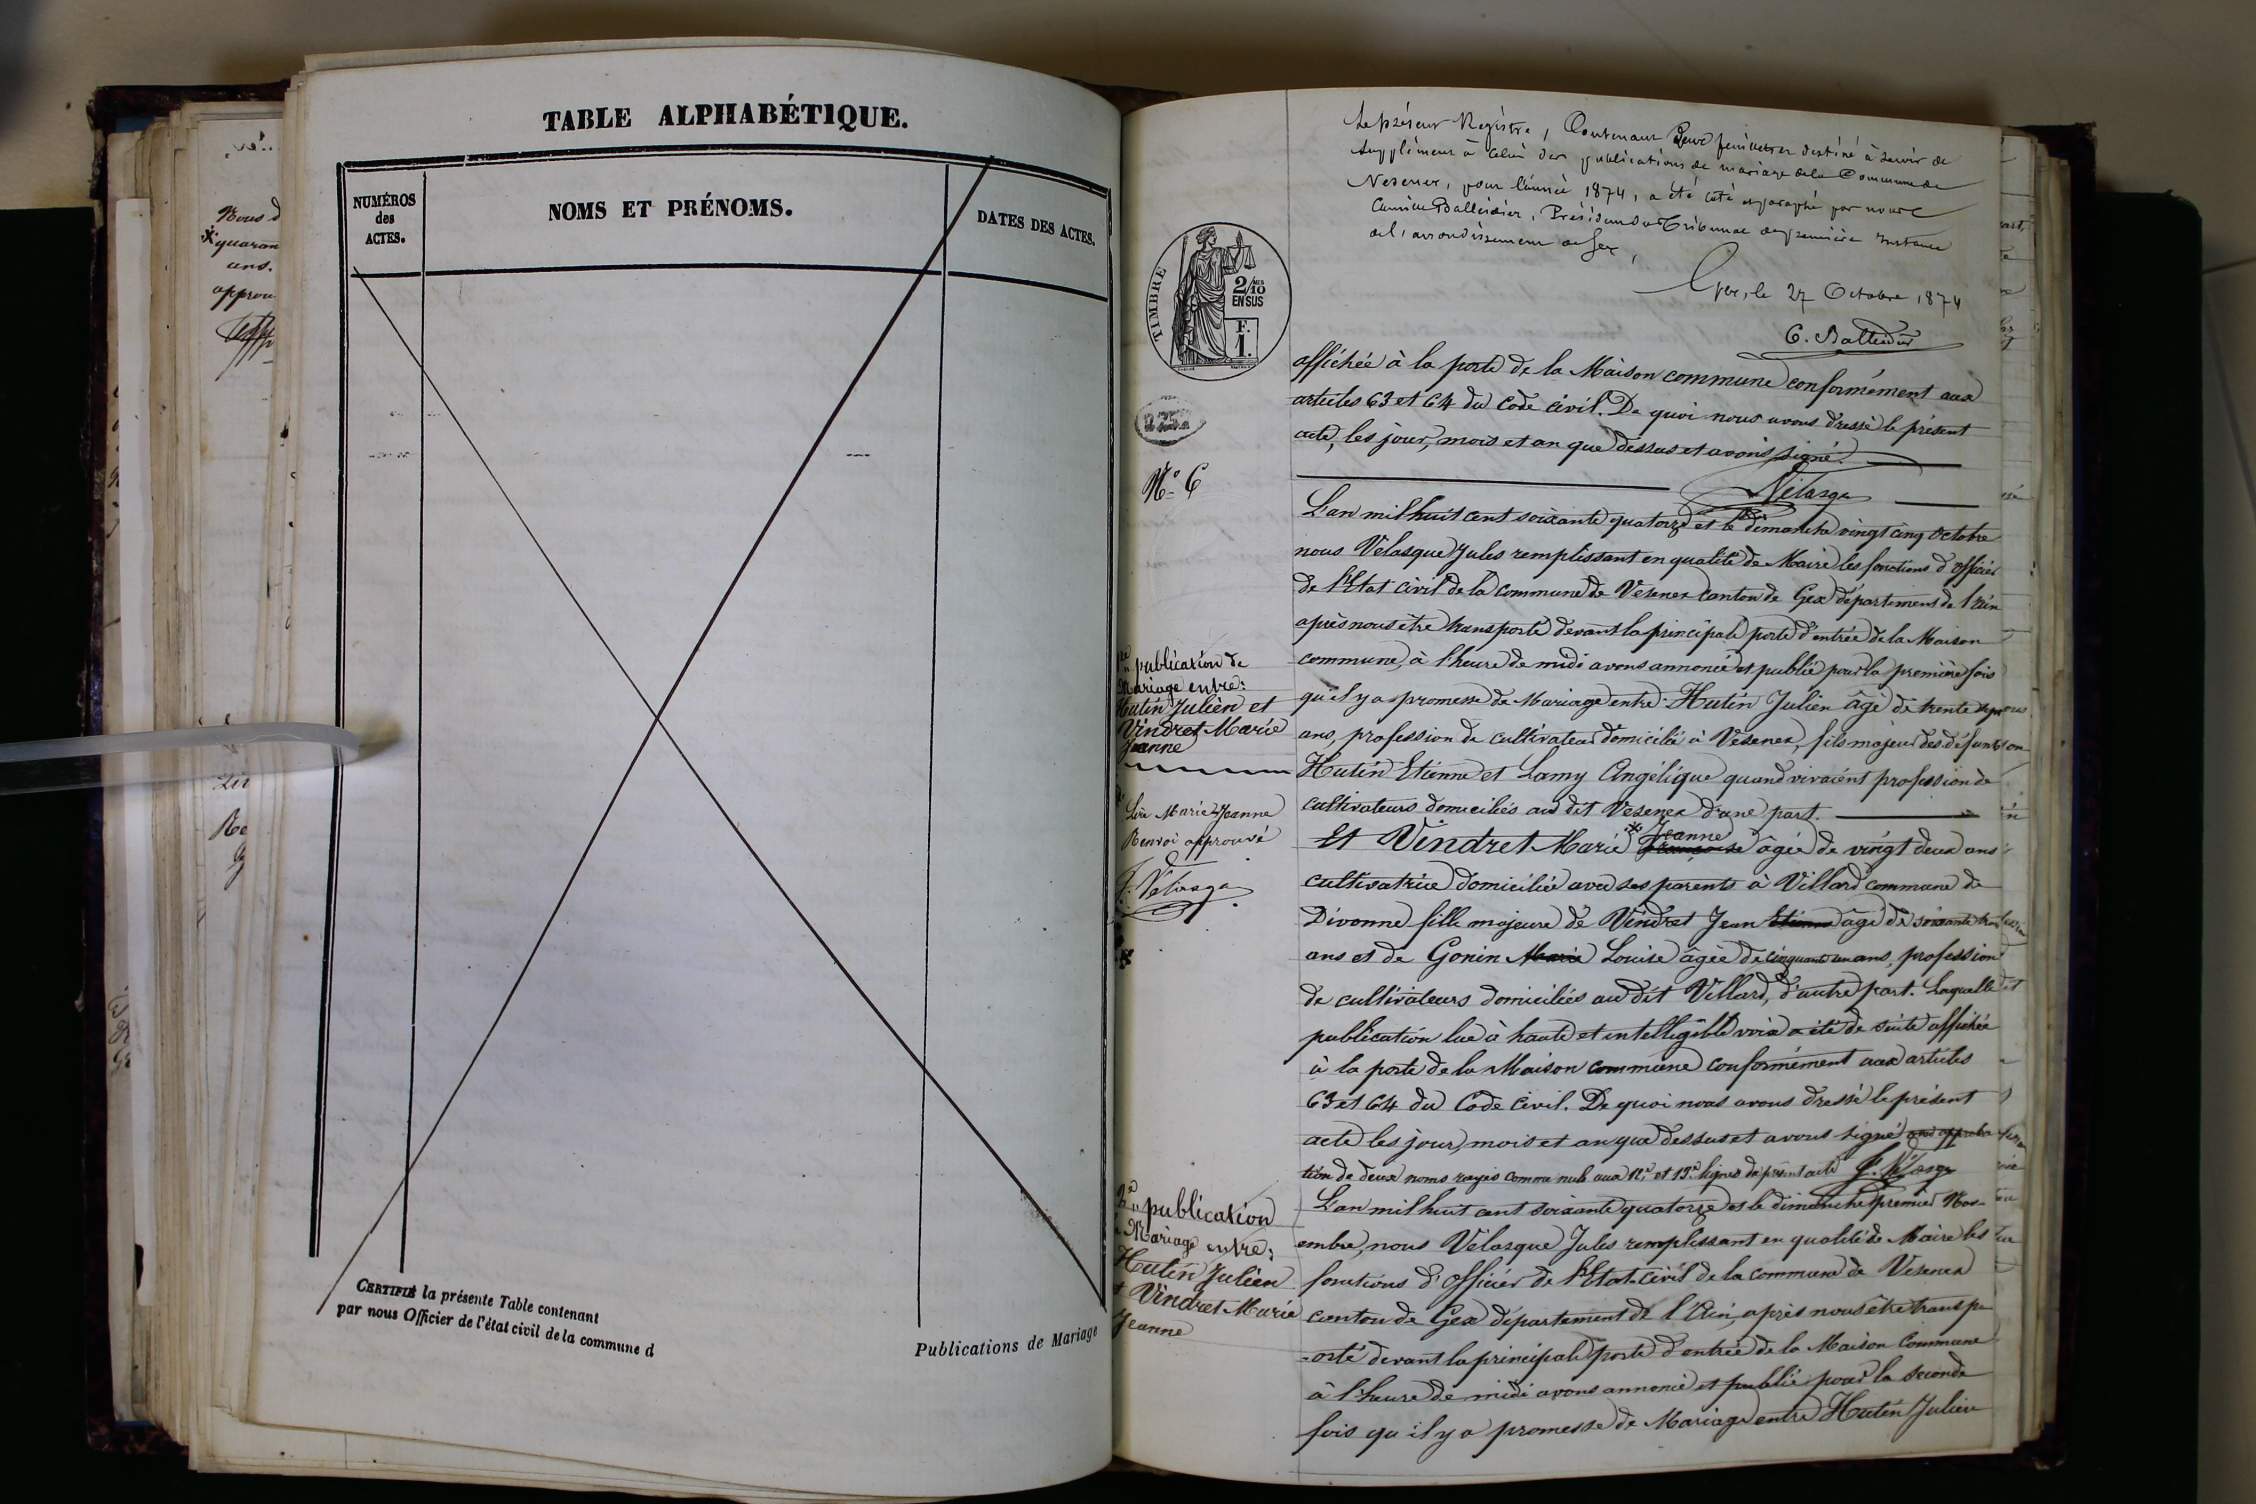 TABLE ALPHABÉTIQUE.
NUMÉROS
des
ACTES.
NOMS ET PRÉNOMS.
DATES DES ACTES.
CERTIFIÉ la présente Table contenant
par nous Officier de l'état civil de la commune d
Publications de Mariage
Nous d
quaran
ans.
approu
Le présent Registre, Contenant deux feuillets destiné à servir de
supplément à celui des publications de mariage de la Commune de
Vesenex, pour l'année 1874, a été coté et paraphé par nous
Camille Balleidier, Président du Tribunal de première Instance
de l'arrondissement de Gex,
Gex, le 27 Octobre 1874
C. Balleidier
TIMBRE
2/10
EN SUS
F.
1.
affichée à la porte de la Maison commune conformément aux
articles 63 et 64 du Code civil. De quoi nous avons dressé le présent
acte, les jour, mois et an que dessus et avons signé.
N° 6
L'an mil huit cent soixante quatorze et le dimanche vingt cinq Octobre
nous Vélasque Jules remplissant en qualité de Maire les fonctions d'officier
de l'Etat civil de la commune de Vesenex canton de Gex département de l'Ain
après nous être transporté devant la principale porte d'entrée de la Maison
commune, à l'heure de midi avons annoncé et publié pour la première fois
qu'il y a promesse de Mariage entre Hutin Julien âgé de trente
ans, profession de cultivateur domicilié à Vesenex, fils majeur des défunts
Hutin Etienne et Lamy Angélique quand vivaient profession de
cultivateurs domiciliés au dit Vesenex d'une part.
Et Vindret Marie * Jeanne Françoise âgée de vingt deux ans
cultivatrice domiciliée avec ses parents à Villard commune de
Divonne fille majeure de Vindret Jean Etienne âgé de soixante trois
ans et de Gonin Marie Louise âgée de cinquante un ans, profession
de cultivateurs domiciliés au dit Villard, d'autre part. Laquelle
publication lue à haute et intelligible voix a été de suite affichée
à la porte de la Maison commune conformément aux articles
63 et 64 du Code Civil. De quoi nous avons dressé le présent
acte les jour, mois et an que dessus et avons signé approba
tion de deux noms rayés comme nuls aux 12e et 13e lignes du présent acte
1re publication de
Mariage entre:
Hutin Julien et
Vindret Marie
Jeanne
Lire Marie Jeanne
Renvoi approuvé
2e publication
Mariage entre:
Hutin Julien
et Vindret Marie
Jeanne
L'an mil huit cent soixante quatorze et le dimanche premier Nov-
embre, nous Vélasque Jules remplissant en qualité de Maire les
fonctions d'Officier de l'Etat civil de la commune de Vesenex
canton de Gex département de l'Ain, après nous être transp-
-orté devant la principale porte d'entrée de la Maison Commune
à l'heure de midi avons annoncé et publié pour la seconde
fois qu'il y a promesse de Mariage entre Hutin Julien